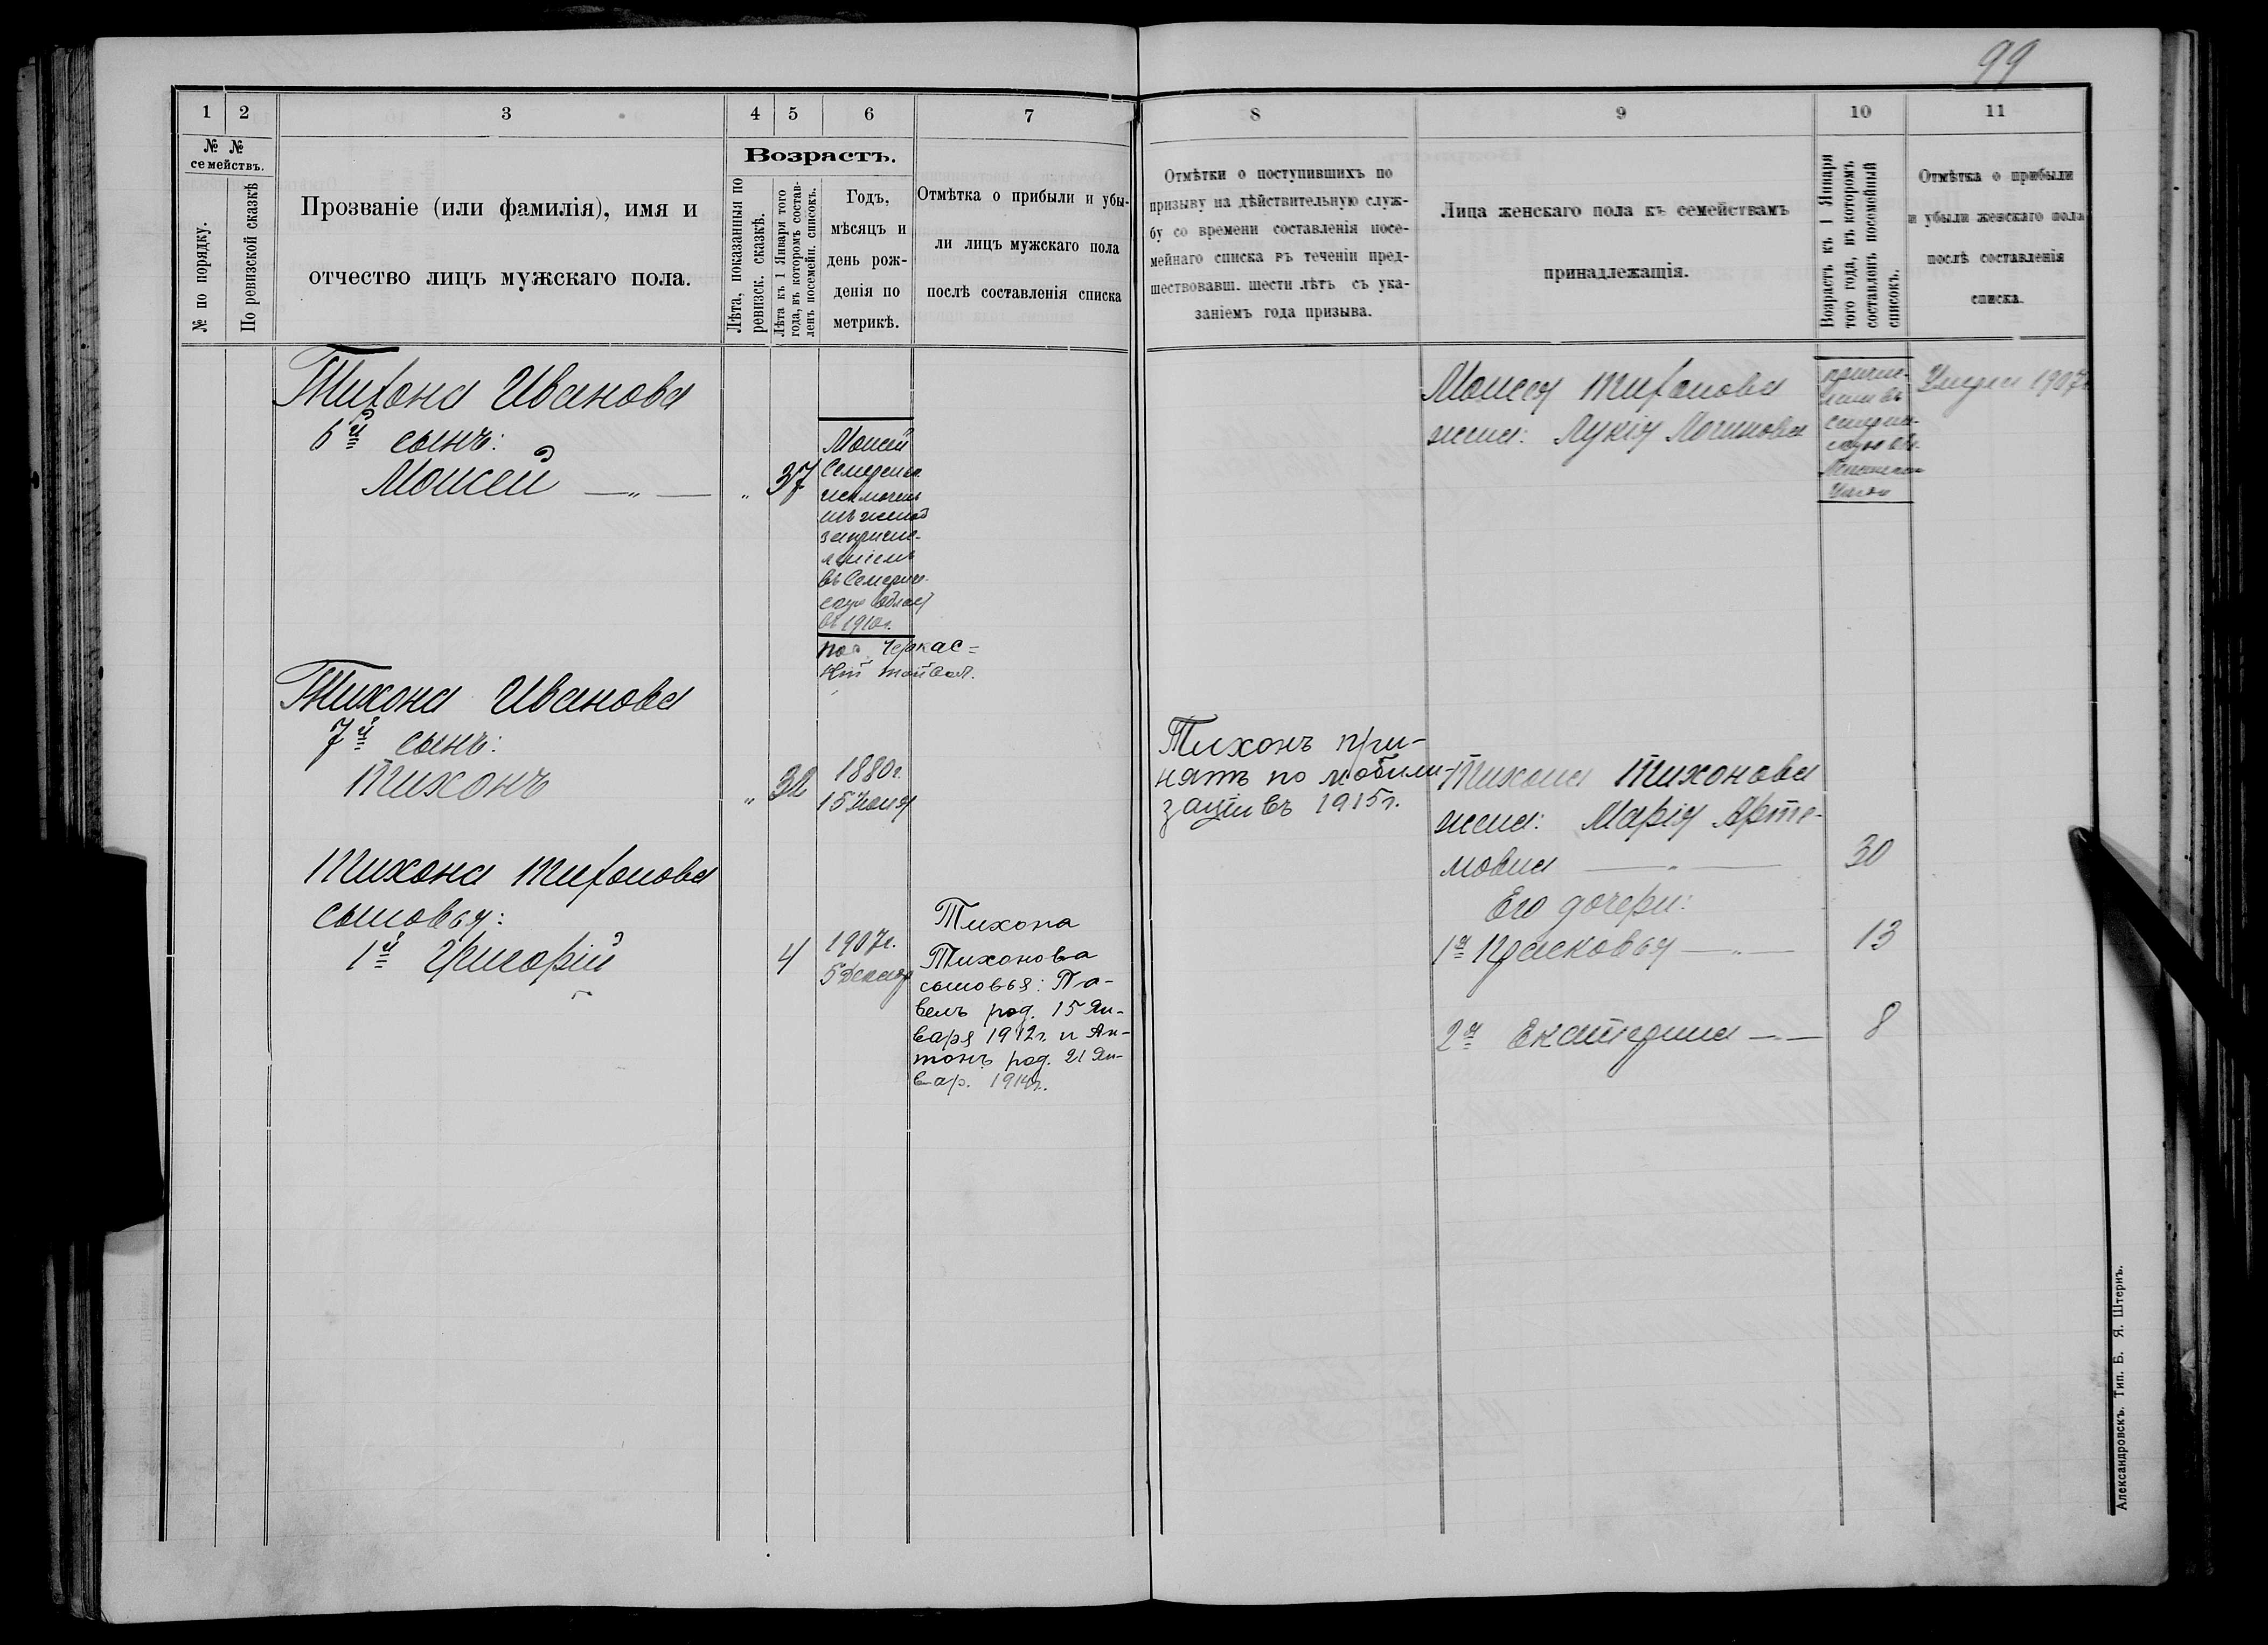 99
1 2 3 4 5 6 7
№ №
семействъ.
№ по порядку.
По ревизской сказкѣ
Прозваніе (или фамилія), имя и
отчество лицъ мужскаго пола.
Возрастъ.
Лѣта, показанныя по
ревизск. сказкѣ.
Лѣта къ 1 Января того
года, въ которомъ состав-
ленъ посемейн. списокъ.
Годъ,
мѣсяцъ и
день рож-
денія по
метрикѣ.
Отмѣтка о прибыли и убы-
ли лицъ мужскаго пола
послѣ составленія списка
Тихона Иванова
6й сынъ:
Моисей — „ — „ 37
Моисей
Семерен
исключен
съ женой
запричис-
леніемъ
въ Семиреч.
скую област
въ 1910г.
Черкас-
Тихона Иванова
7й сынъ:
Тихонъ „ 32
1880г.
15 Іюня
Тихона Тихонова
сыновья:
1й Григорій 4
1907г.
5 Декабр
Тихона
Тихонова
сыновья: Па-
велъ род. 15 Ян-
варя 1912г. и Ан-
тонъ род. 21 Ян-
вар. 1914г.
8 9 10 11
Отмѣтки о поступившихъ по
призыву на дѣйствительную служ-
бу со времени составленія посе-
мейнаго списка въ теченіи пред-
шествовавш. шести лѣтъ съ ука-
заніемъ года призыва.
Лица женскаго пола къ семействамъ
принадлежащія.
Возрастъ къ 1 Января
того года, въ которомъ
составленъ посемейный
списокъ.
Отмѣтка о прибыли
и убыли женскаго пола
послѣ составленія
списка.
Моисея Тихонова
жена: Лукія Логинова
Умерла 1907г
Тихонъ при-
нятъ по мобили-
заціи въ 1915г.
Тихона Тихонова
жена: Марія Арте-
мовна — „ — 30
Его дочери:
1я Прасковья — „ — 13
2я Екатерина — — 8
Александровскъ. Тип. Б. Я. Штернъ.